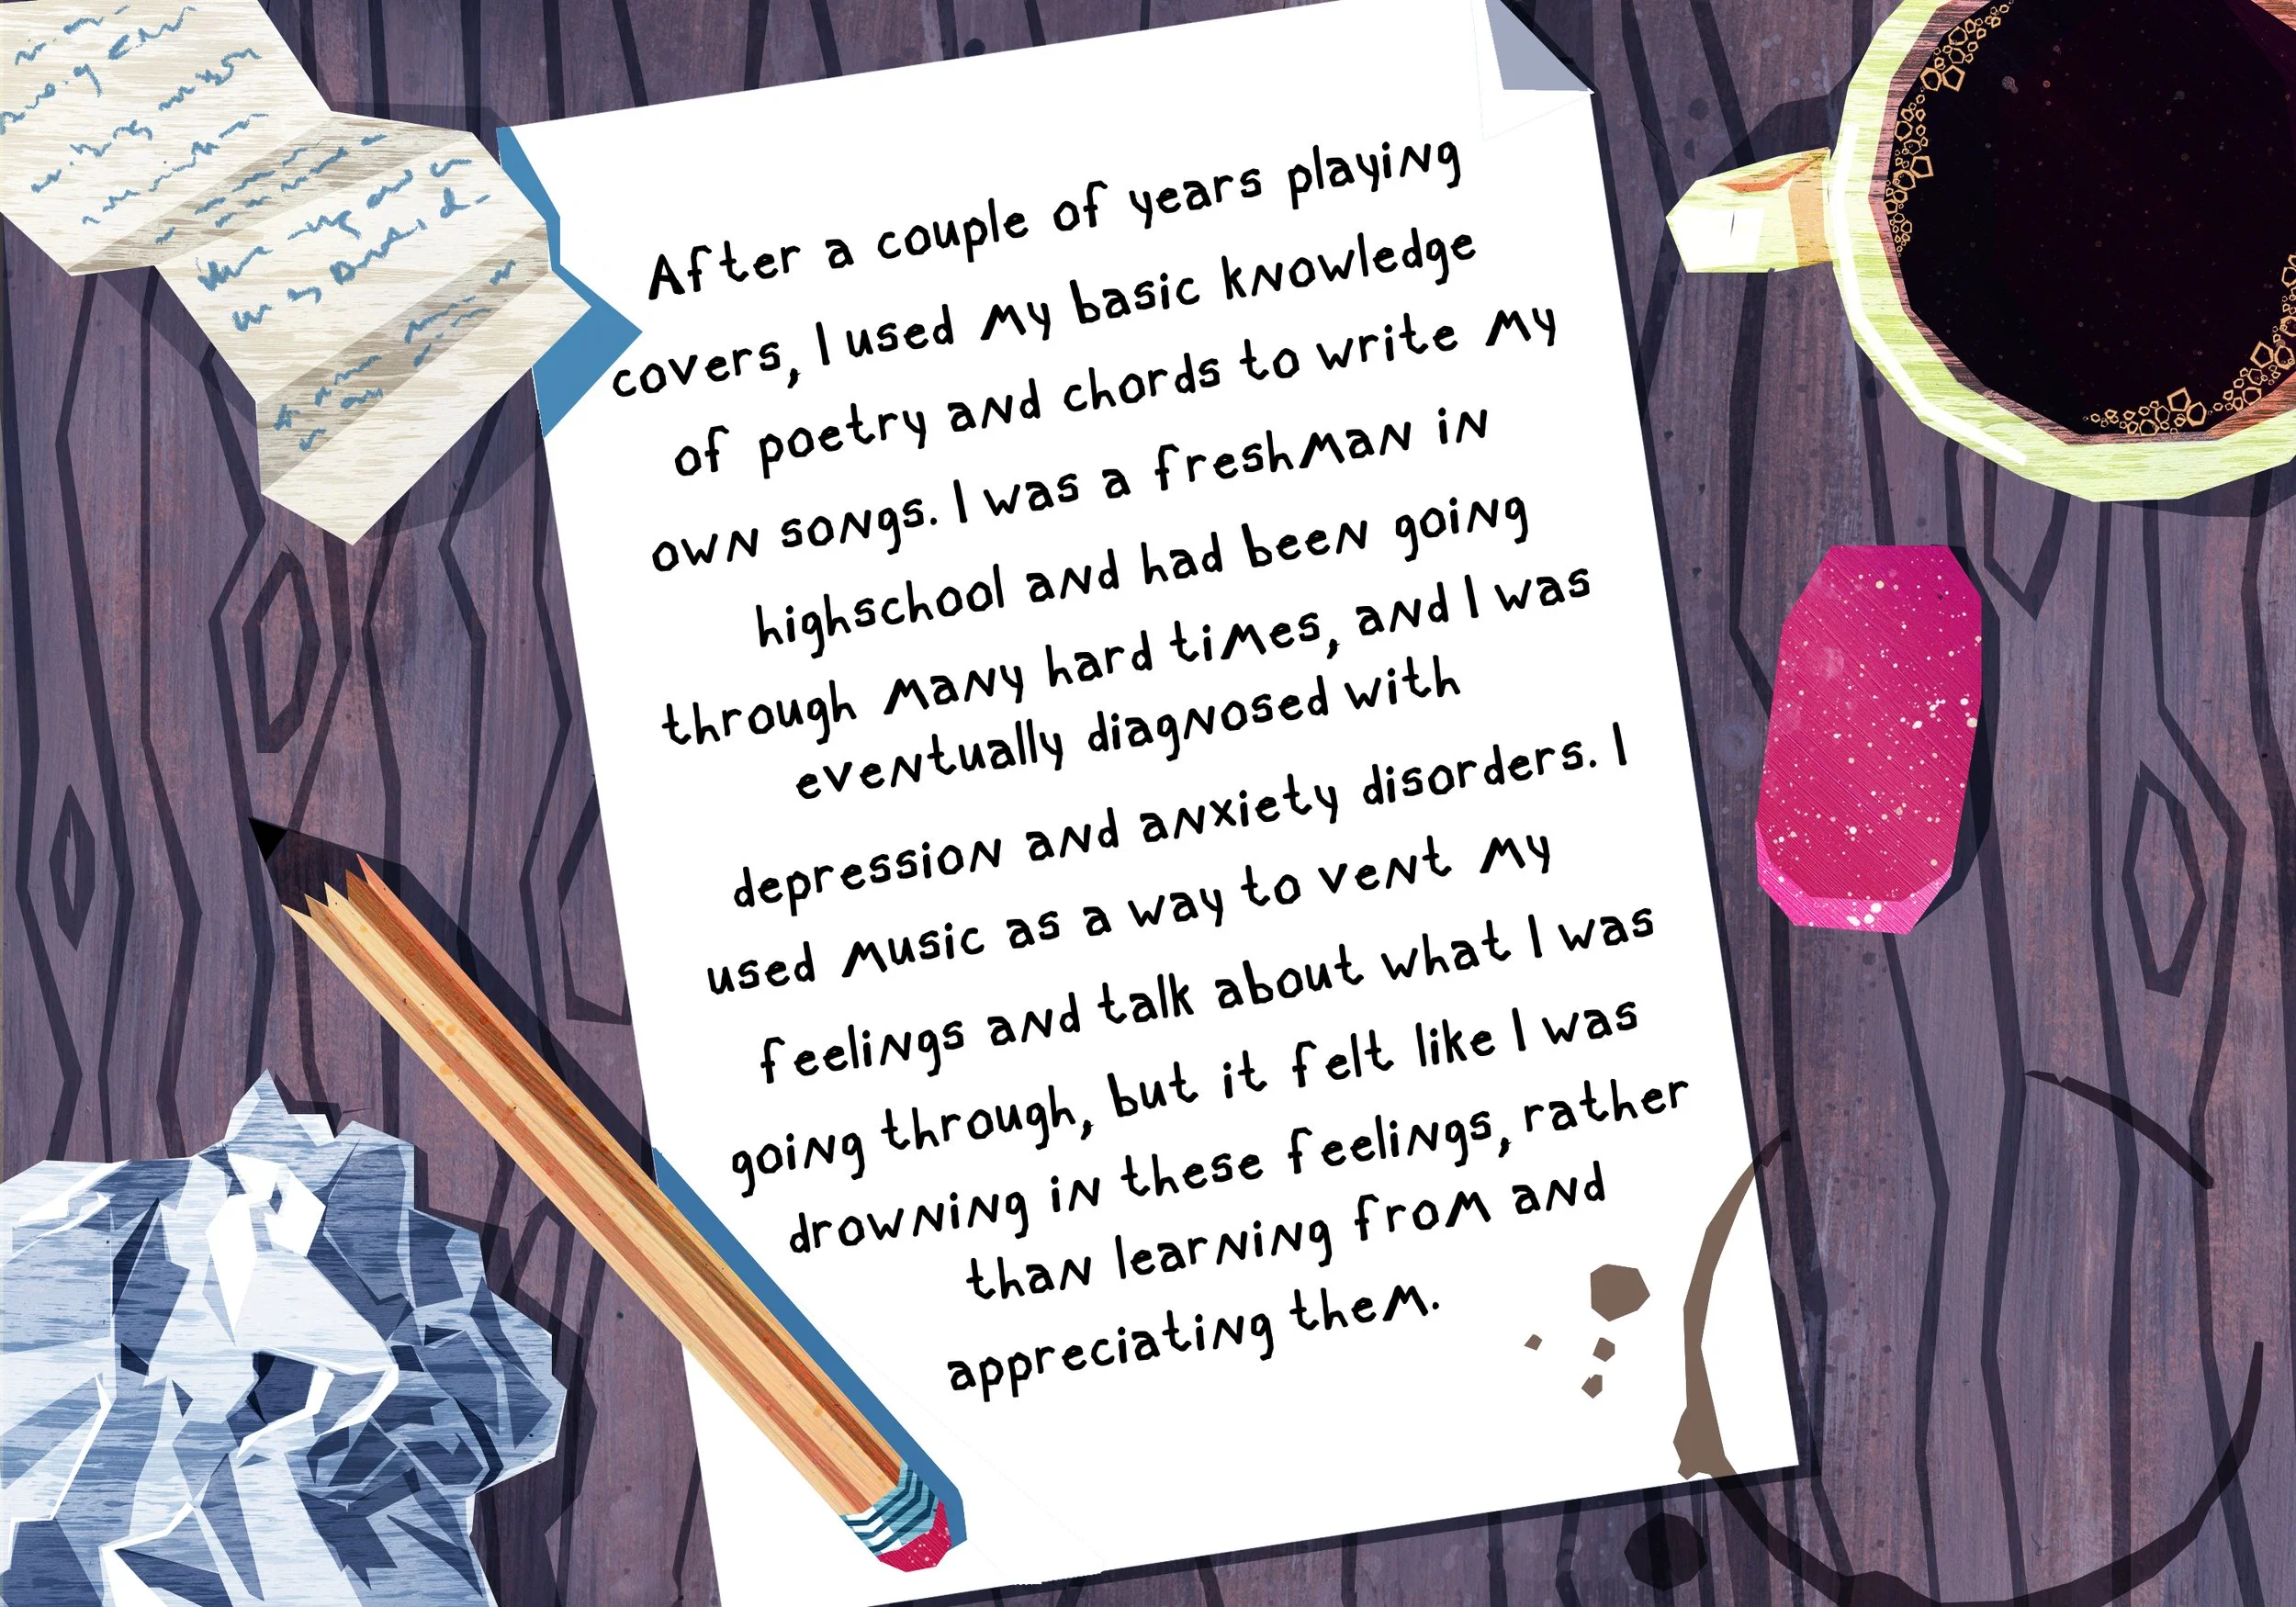 After a couple of years playing
covers, I used my basic knowledge
of poetry and chords to write my
own songs. I was a freshman in
highschool and had been going
through many hard times, and I was
eventually diagnosed with
depression and anxiety disorders. I
used music as a way to vent my
feelings and talk about what I was
going through, but it felt like I was
drowning in these feelings, rather
than learning from and
appreciating them.